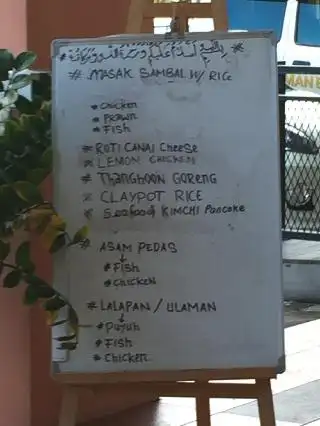 # MASAK SAMBAL W/ RICE
* Chicken
* PRAWN
* FISH
# ROTI CANAI CHEESE
# LEMON CHICKEN
# THANGHOON GORENG
# CLAYPOT RICE
# Seafood KIMCHI Pancake
# ASAM PEDAS
# FISH
# CHICKEN
# LALAPAN / ULAMAN
# Puyuh
# Fish
# Chicken
MAN